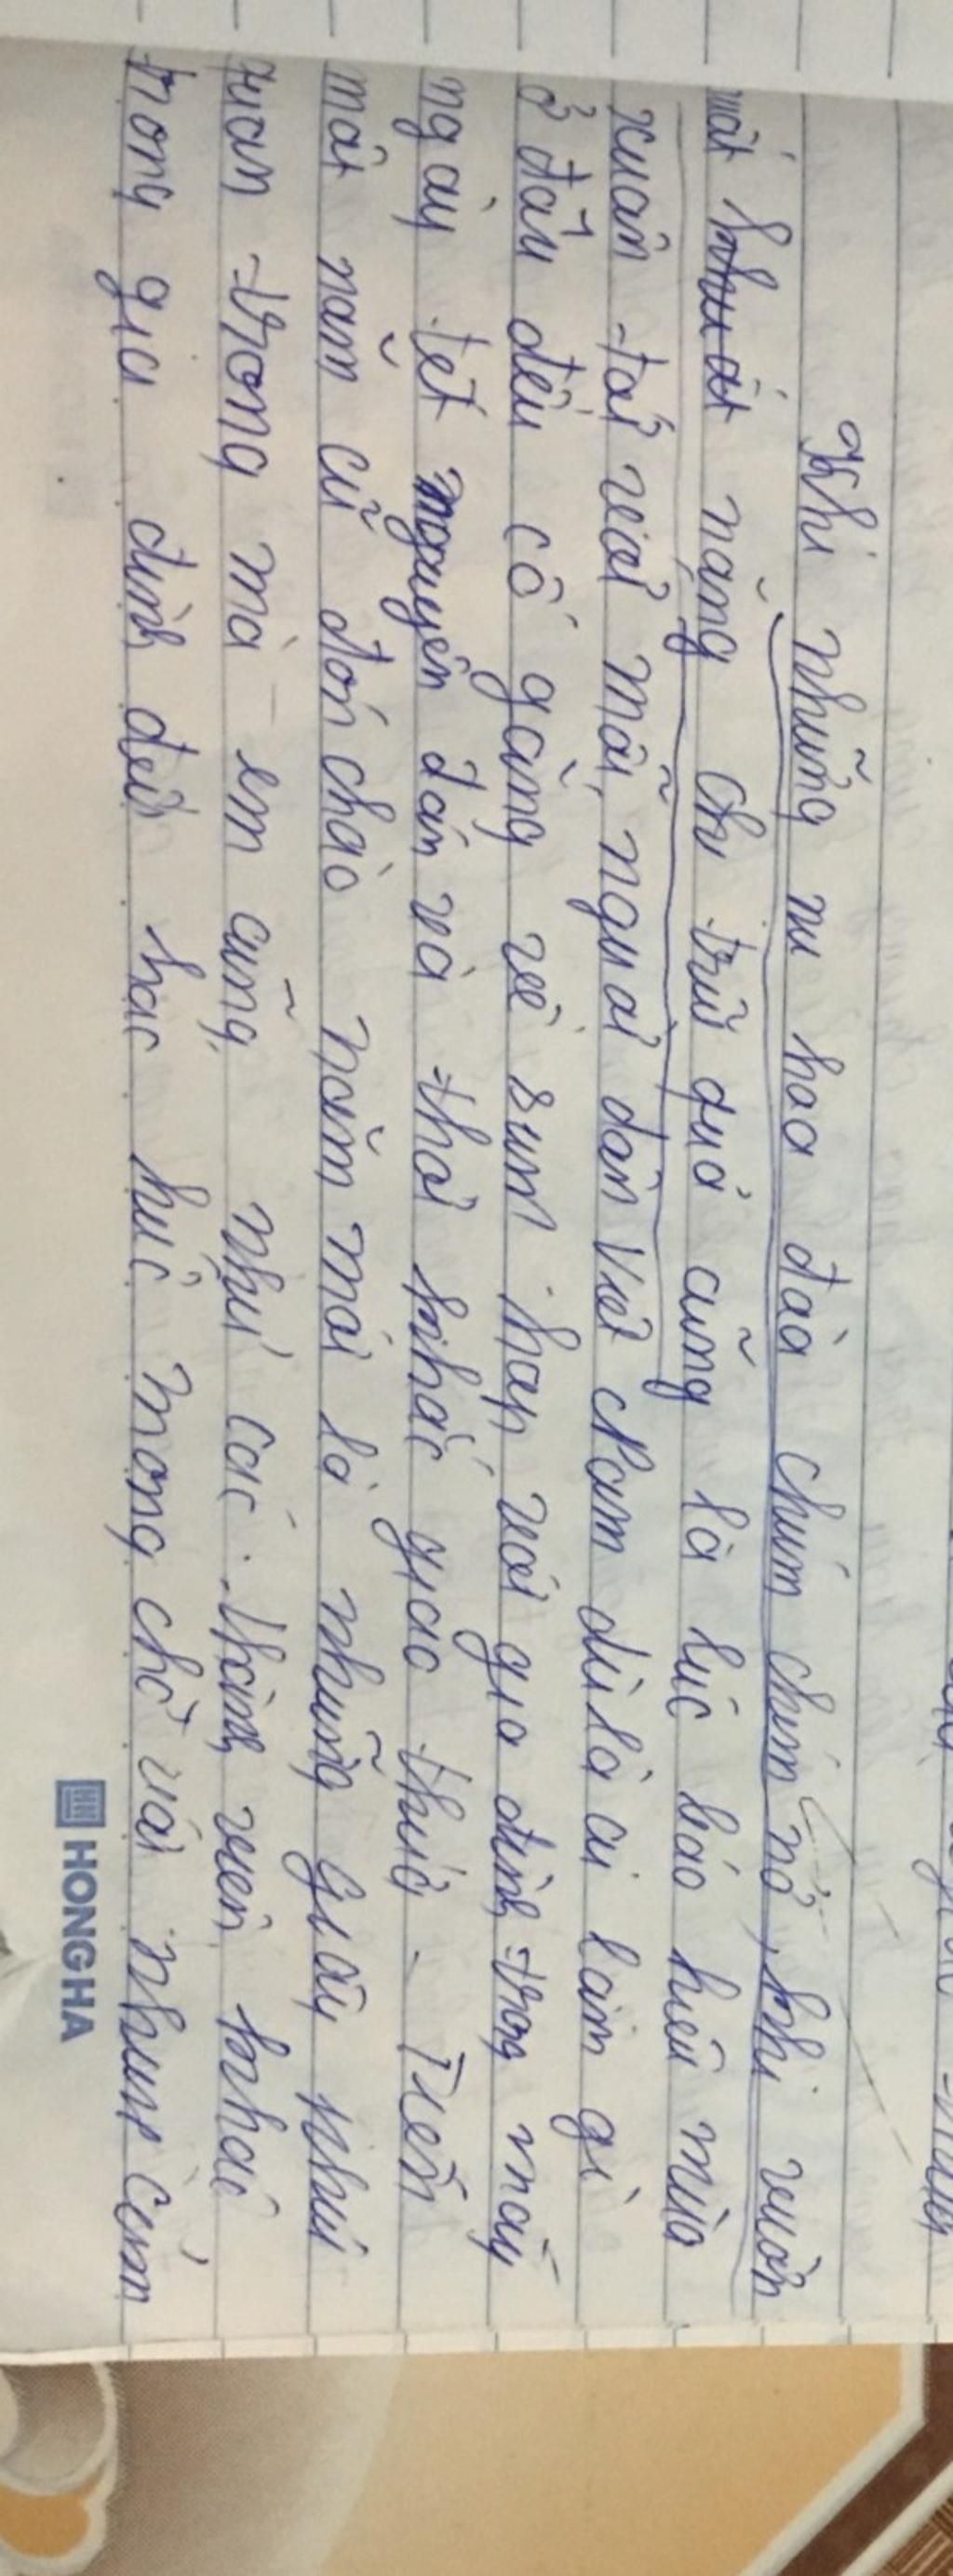 Khi những nụ hoa đào chúm chím nở, khi vườn
mát khuất nặng chu trĩu quả cũng là lúc báo hiệu mùa
xuân tới rồi mỗi người dân Việt Nam dù là ai làm gì
ở đâu đều cố gắng về sum họp với gia đình trong mấy
ngày tết nguyên đán và thời khắc giao thừa. Tiễn
một năm cũ đón chào năm mới là những giây phút
trong mà em cũng như các thành viên khác
trong gia đình đều háo hức mong chờ với nhúp cúm
HONGHA